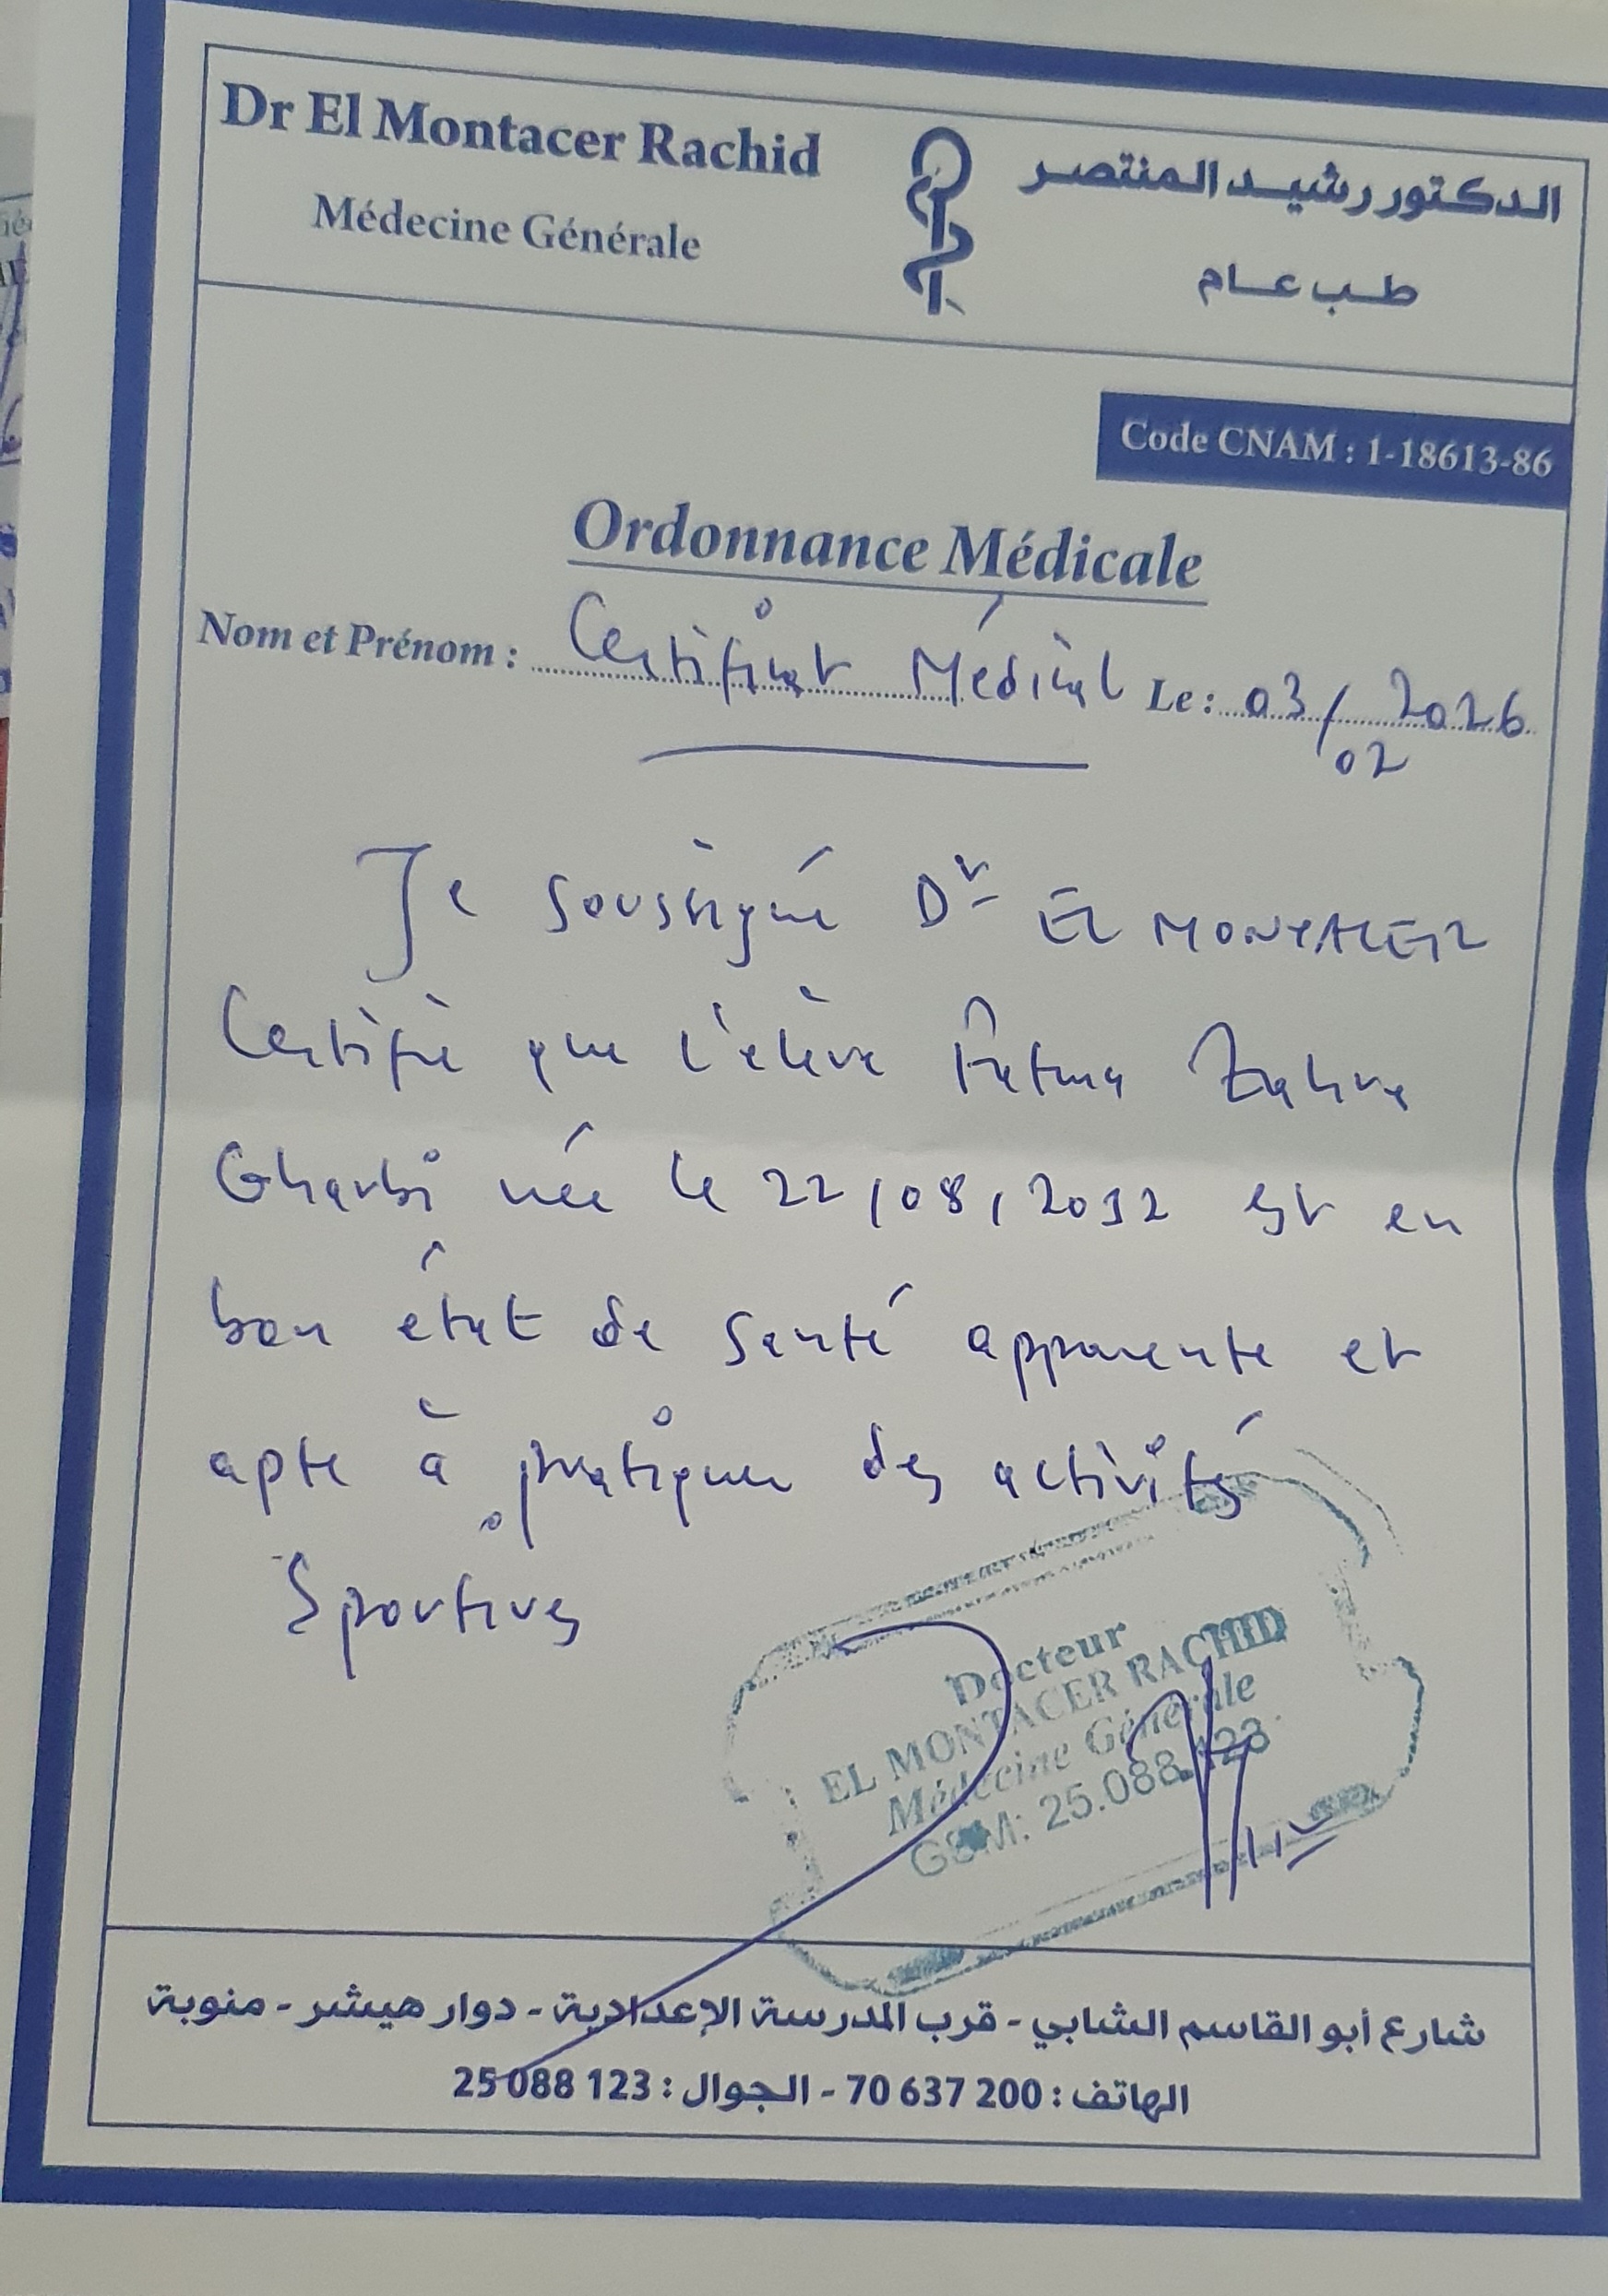 Dr El Montacer Rachid
Médecine Générale
الدكتور رشيد المنتصر
طب عام
Code CNAM : 1-18613-86
Ordonnance Médicale
Nom et Prénom : Certificat Médical Le : 03/02 2026
Je soussigné Dr EL MONTACER
Certifie que l'élève Fatma Zahra
Gharbi née le 22/08/2012 est en
bon état de santé apparente et
apte à pratiquer des activités
Sportives
Docteur
EL MONTACER RACHID
Médecine Générale
GSM: 25.088.123
شارع أبو القاسم الشابي - قرب المدرسة الإعدادية - دوار هيشر - منوبة
الهاتف : 200 637 70 - الجوال : 123 088 25